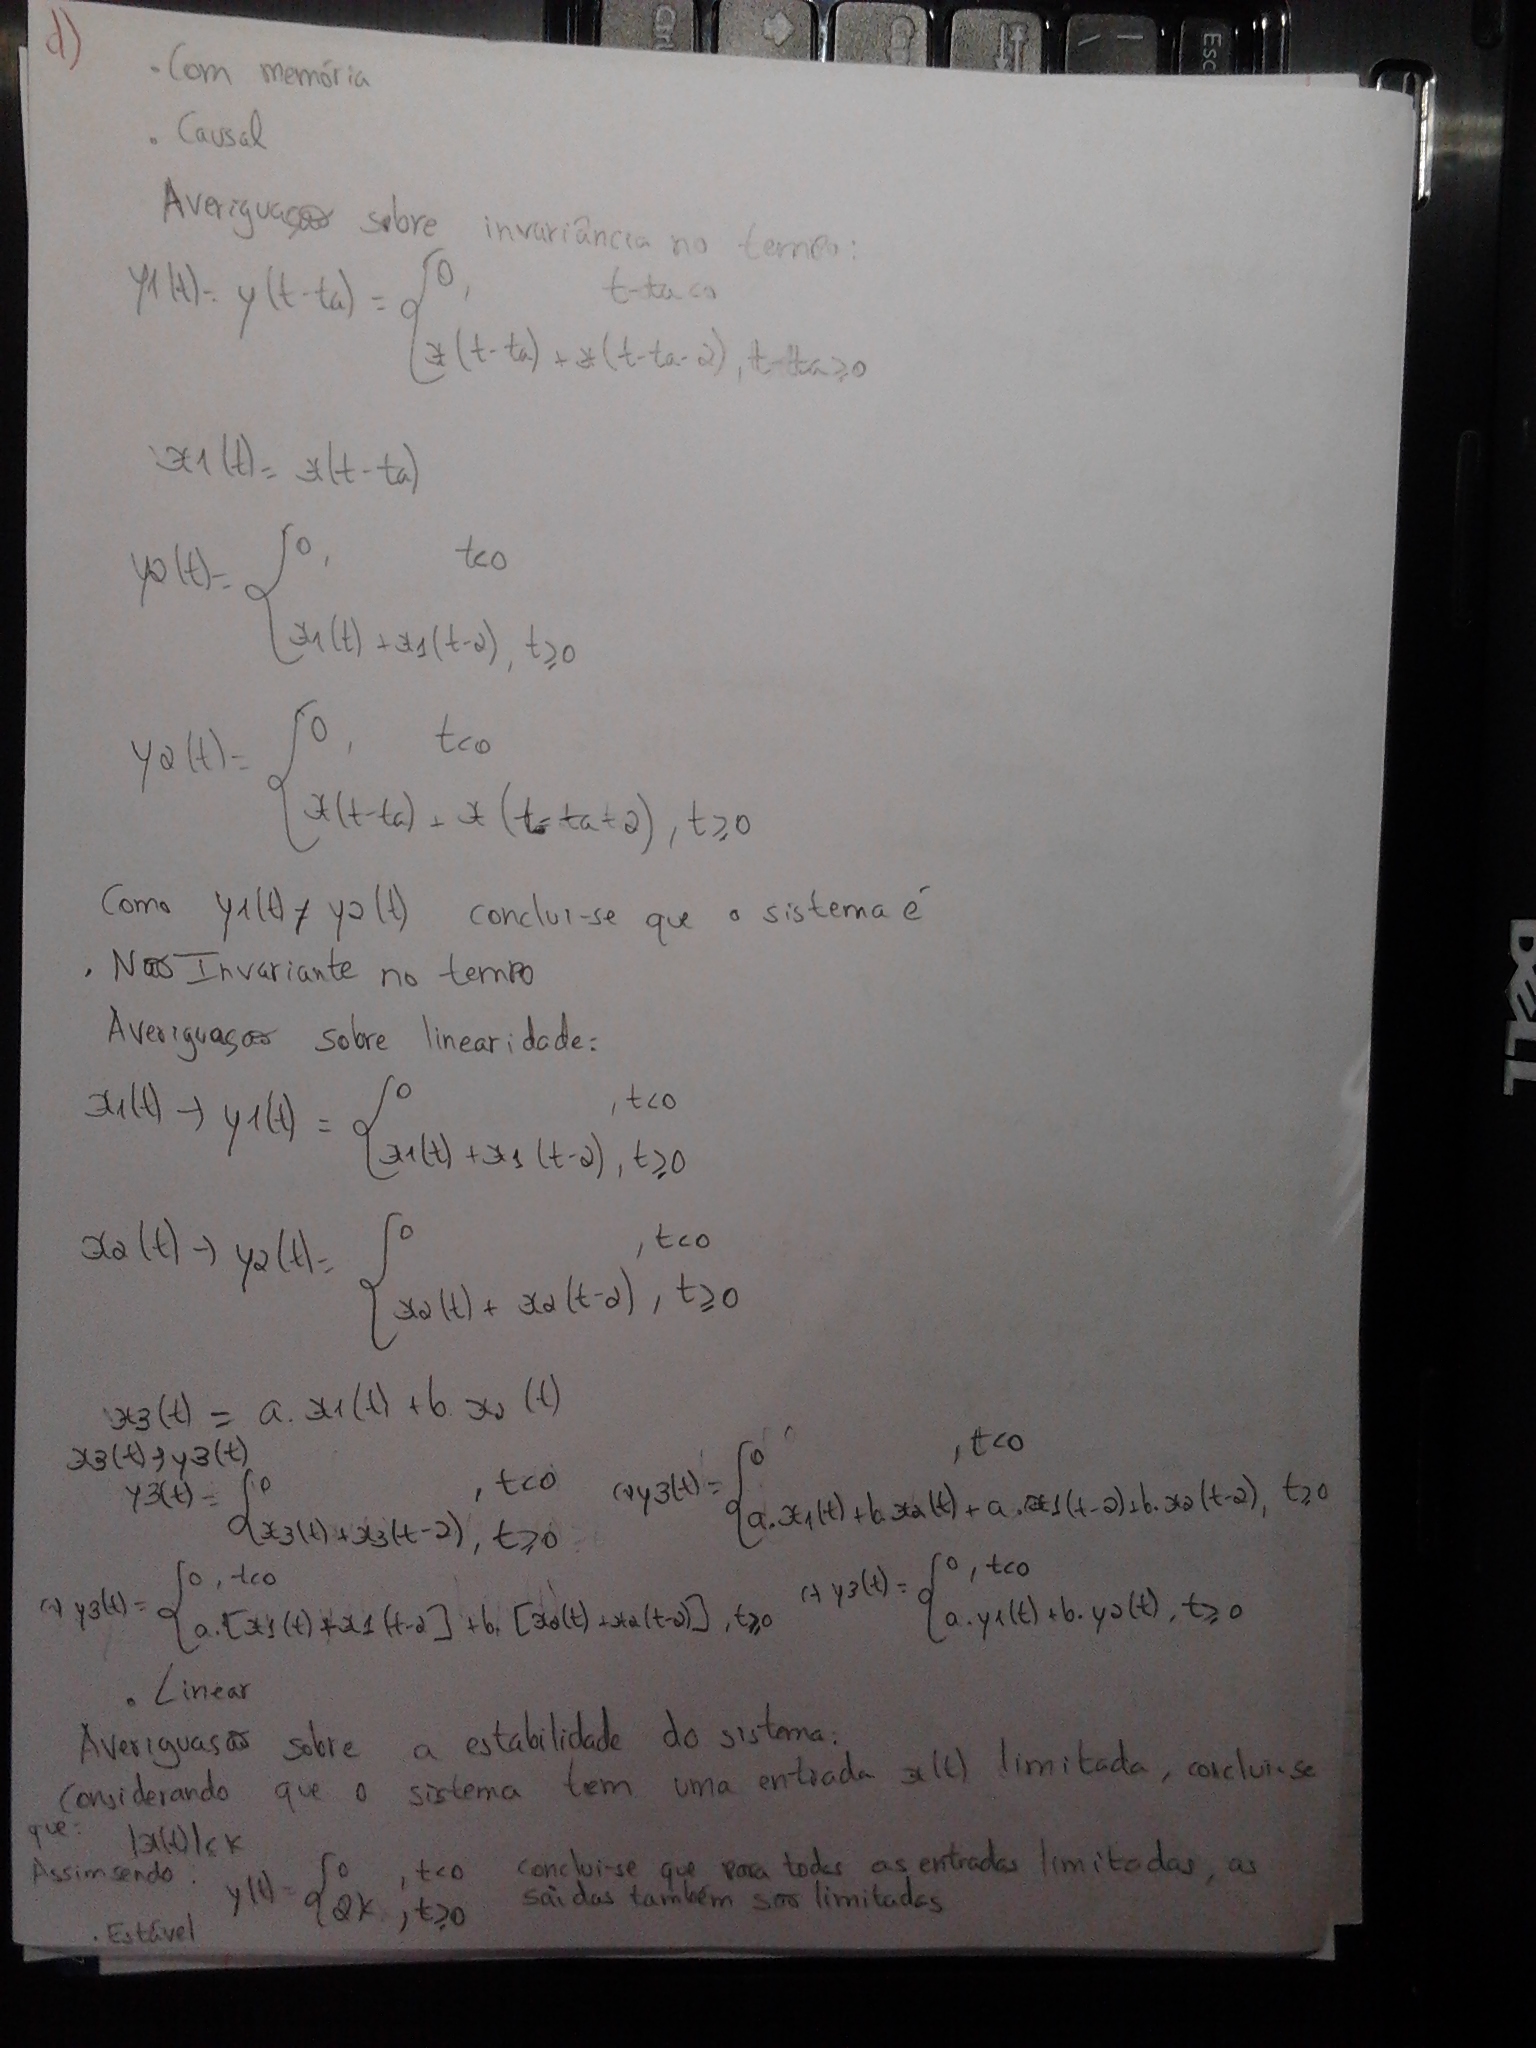 Ctrl
Esc
d)
. Com memória
. Causal
Averiguação sobre invariância no tempo:
y1(t) = y(t-ta) = { 0, t-ta<0
x(t-ta) + x(t-ta-2), t-ta≥0
x1(t) = x(t-ta)
y2(t) = { 0, t<0
x1(t) + x1(t-2), t≥0
y2(t) = { 0, t<0
x(t-ta) + x(t-ta+2), t≥0
Como y1(t) ≠ y2(t) conclui-se que o sistema é
. Não Invariante no tempo
Averiguação sobre linearidade:
x1(t) → y1(t) = { 0 , t<0
x1(t) + x1(t-2), t≥0
x2(t) → y2(t) = { 0 , t<0
x2(t) + x2(t-2), t≥0
x3(t) = a.x1(t) + b.x2(t)
x3(t) → y3(t)
y3(t) = { 0 , t<0
x3(t) + x3(t-2), t≥0
(=) y3(t) = { 0 , t<0
a.x1(t) + b.x2(t) + a.x1(t-2) + b.x2(t-2), t≥0
(=) y3(t) = { 0, t<0
a.[x1(t) + x1(t-2] + b.[x2(t) + x2(t-2)], t≥0
(=) y3(t) = { 0, t<0
a.y1(t) + b.y2(t), t≥0
. Linear
Averiguasão sobre a estabilidade do sistema:
Considerando que o sistema tem uma entrada x(t) limitada, conclui-se
que: |x(t)|≤k
Assim sendo: y(t) = { 0 , t<0
2k , t≥0
conclui-se que para todas as entradas limitadas, as
saídas também são limitadas
. Estável
DELL